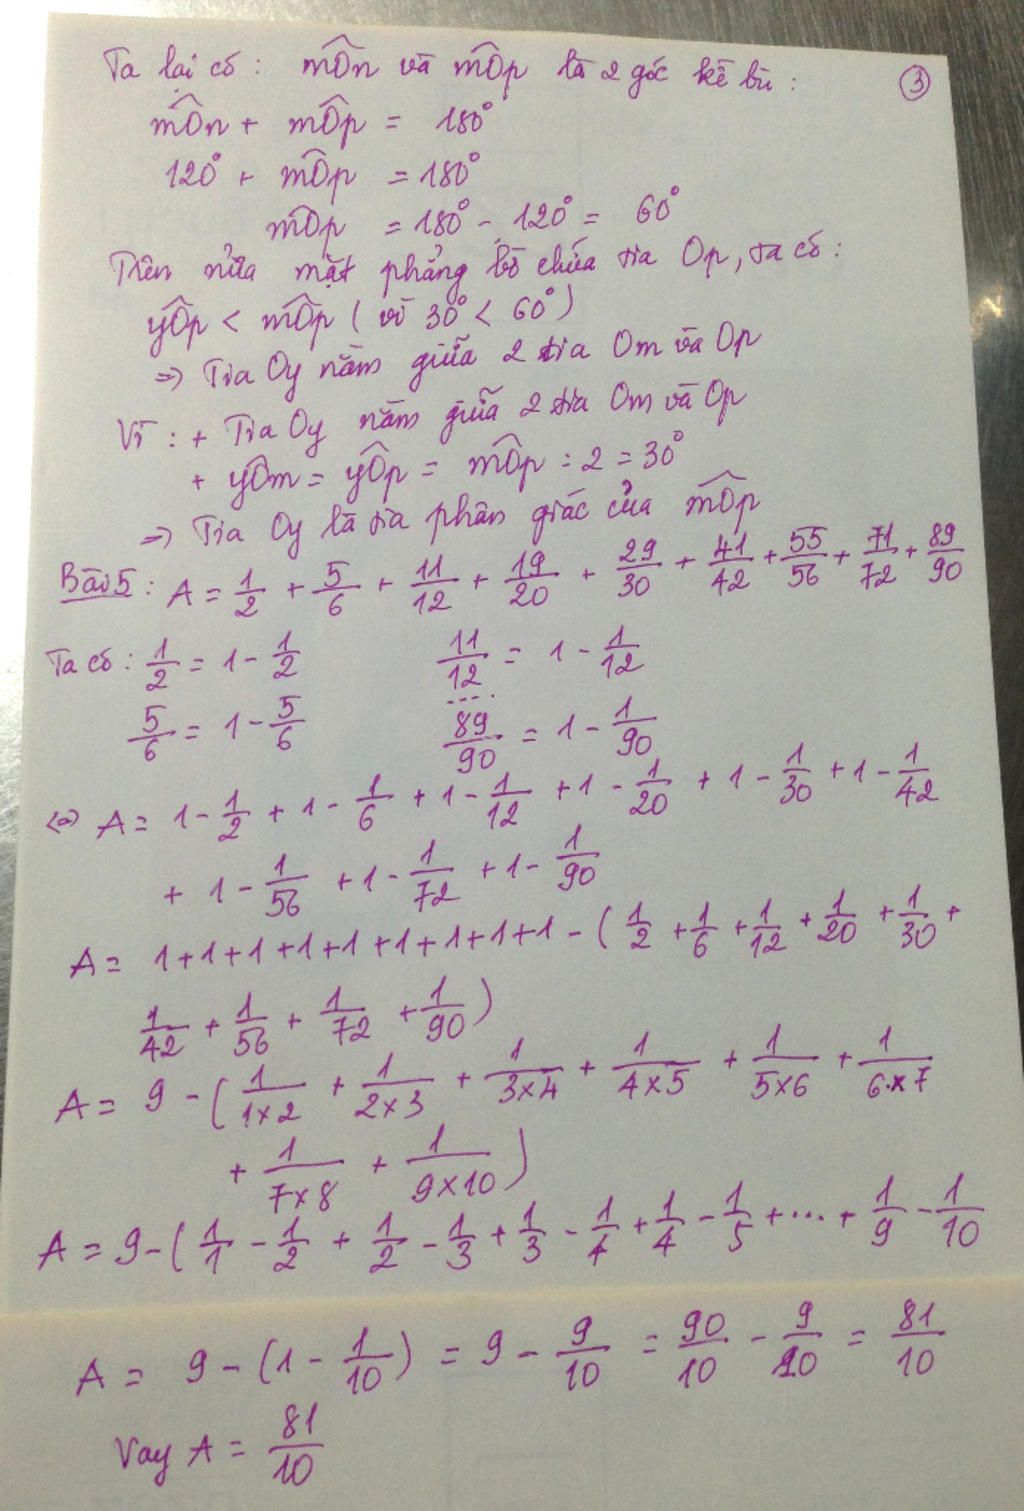 Ta lại có : mÔn và mÔp là 2 góc kề bù :
③
mÔn + mÔp = 180°
120° + mÔp = 180°
mÔp = 180° - 120° = 60°
Trên nửa mặt phẳng bờ chứa tia Op, ta có :
yÔp < mÔp ( vì 30° < 60° )
=> Tia Oy nằm giữa 2 tia Om và Op
Vì : + Tia Oy nằm giữa 2 tia Om và Op
+ yÔm = yÔp = mÔp : 2 = 30°
=> Tia Oy là tia phân giác của mÔp
Bài 5 : A = 1/2 + 5/6 + 11/12 + 19/20 + 29/30 + 41/42 + 55/56 + 71/72 + 89/90
Ta có : 1/2 = 1 - 1/2 11/12 = 1 - 1/12
....
5/6 = 1 - 5/6 89/90 = 1 - 1/90
<=> A = 1 - 1/2 + 1 - 1/6 + 1 - 1/12 + 1 - 1/20 + 1 - 1/30 + 1 - 1/42
+ 1 - 1/56 + 1 - 1/72 + 1 - 1/90
A = 1+1+1+1+1+1+1+1+1 - ( 1/2 + 1/6 + 1/12 + 1/20 + 1/30 +
1/42 + 1/56 + 1/72 + 1/90 )
A = 9 - ( 1/1×2 + 1/2×3 + 1/3×4 + 1/4×5 + 1/5×6 + 1/6×7
+ 1/7×8 + 1/9×10 )
A = 9 - ( 1/1 - 1/2 + 1/2 - 1/3 + 1/3 - 1/4 + 1/4 - 1/5 + ... + 1/9 - 1/10
A = 9 - (1 - 1/10) = 9 - 9/10 = 90/10 - 9/10 = 81/10
Vay A = 81/10